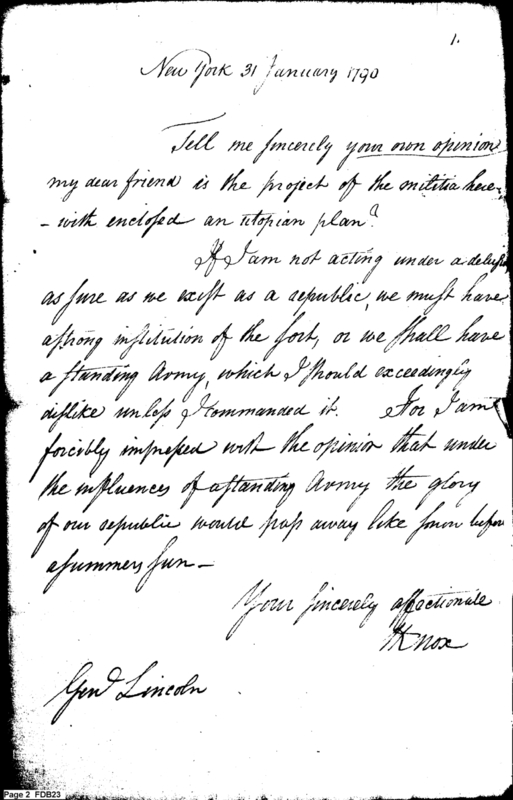 1.
New York 31 January 1790
Tell me sincerely your own opinion
my dear friend is the project of the militia here=
- with enclosed an utopian plan?
If I am not acting under a delusion
as sure as we exist as a republic, we must have
a strong institution of the sort, or we shall have
a standing Army, which I should exceedingly
dislike unless I commanded it. For I am
forcibly impressed with the opinion that under
the influences of a standing Army the glory
of our republic would pass away like snow before
a summers sun -
Your sincerely affectionate
HKnox
Genl Lincoln
Page 2 FDB23